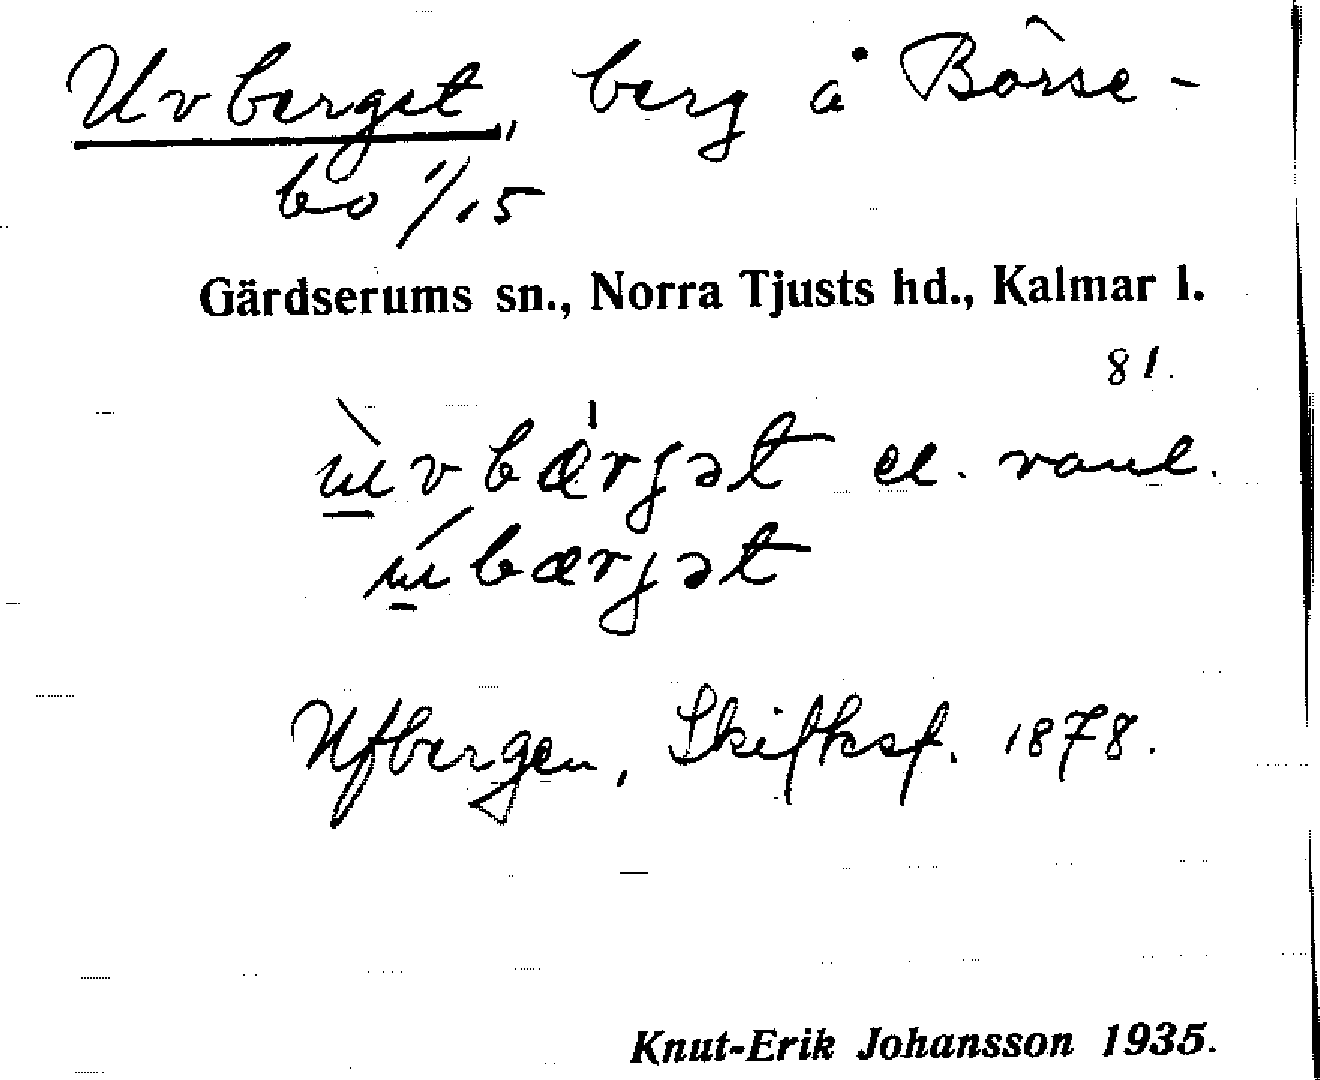 Uvberget, berg å Börse-
bo 1/15
Gärdserums sn., Norra Tjusts hd., Kalmar l.
81.
ɯ̀vbærgət el. vanl.
ɯ́bærgət
Ufbergen, Skifksf. 1878.
Knut-Erik Johansson 1935.